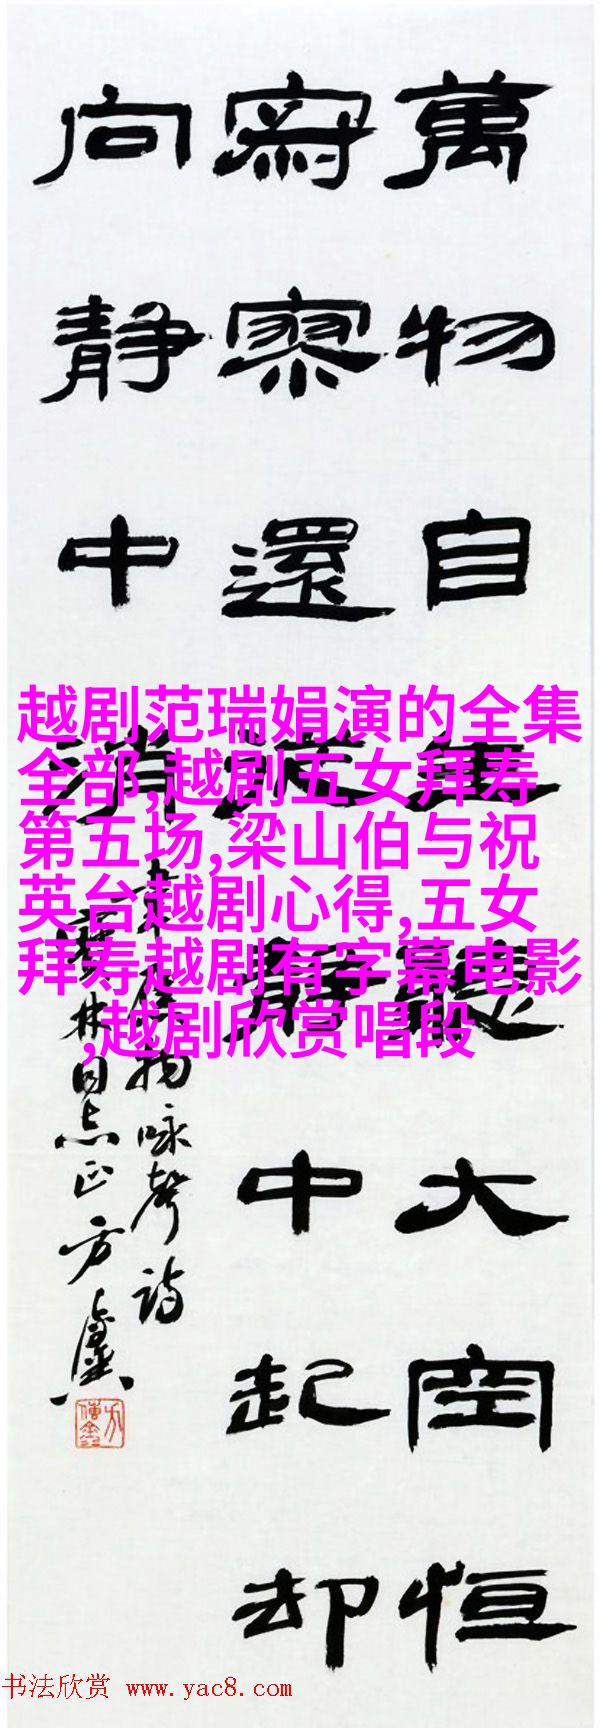 萬物自生聽大空恒
寂寥還從静中起却
向静中消
韋應物咏聲詩
林同志正方
越剧范瑞娟演的全集
全部,越剧五女拜寿
第五场,梁山伯与祝
英台越剧心得,五女
拜寿越剧有字幕电影
,越剧欣赏唱段
书法欣赏 www.yac8.com